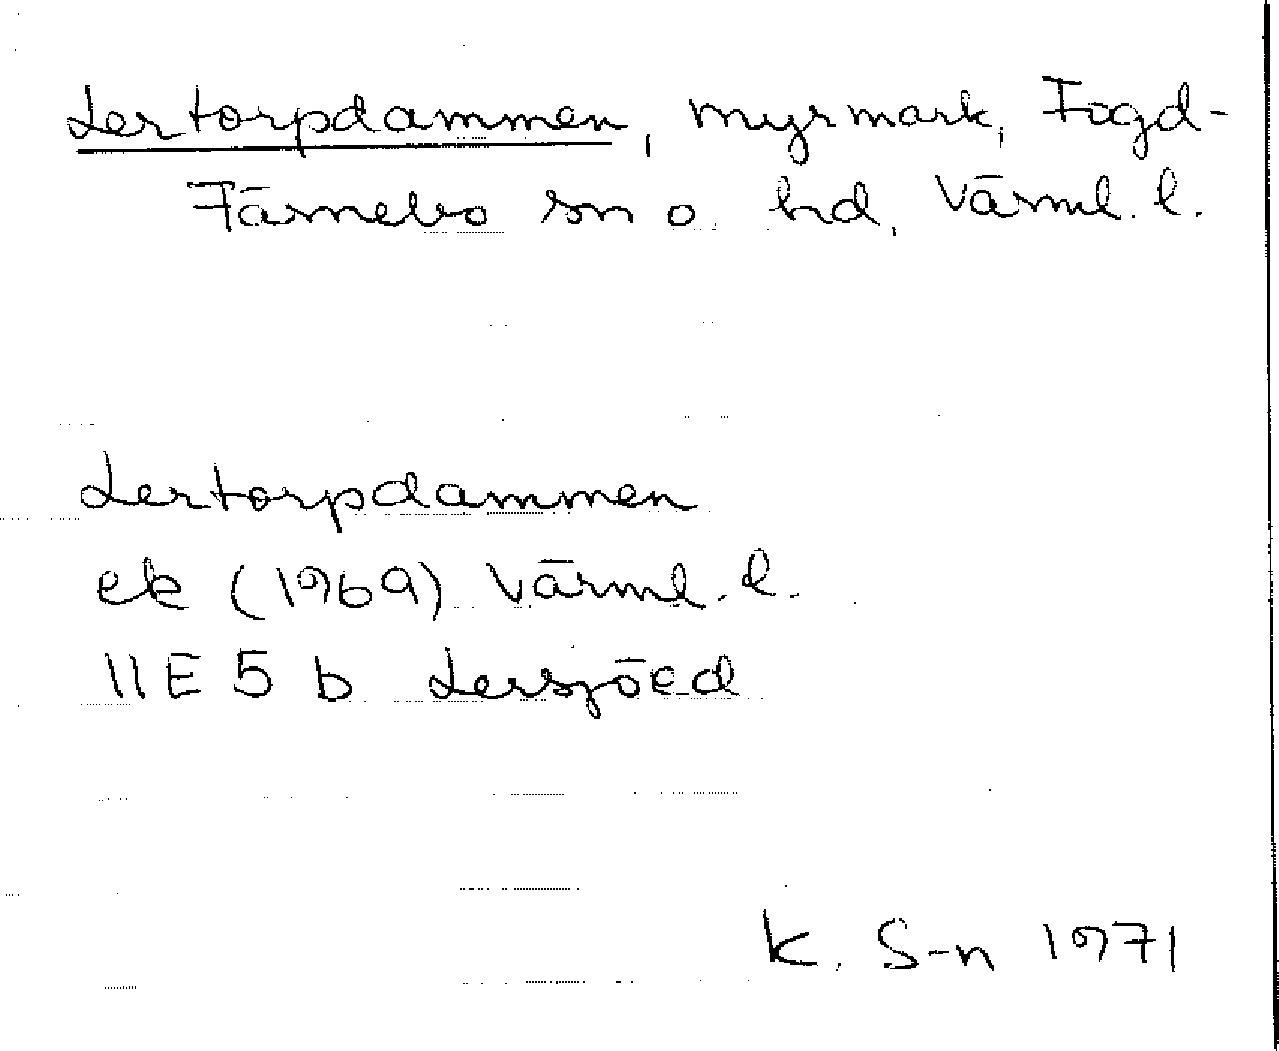 Lertorpdammen, myrmark, Fogd-
Färnebo sn o. hd, Värml. l.
Lertorpdammen
ek (1969) Värml. l.
11E 5 b Lersjöed
K. S-n 1971